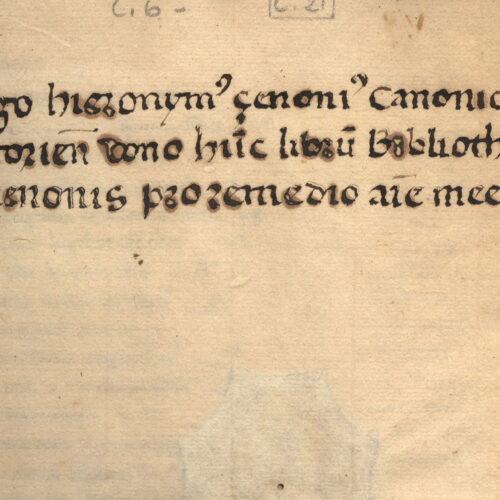 C. 6 - C. 21
go hieronymꝰ çenoniꝰ Canonic
torieñ dono hūc librū Biblioth
enonis pro remedio aīe mee